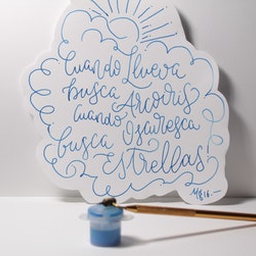 Cuando Llueva
busca Arcoiris
Cuando Oscuresca
busca
Estrellas